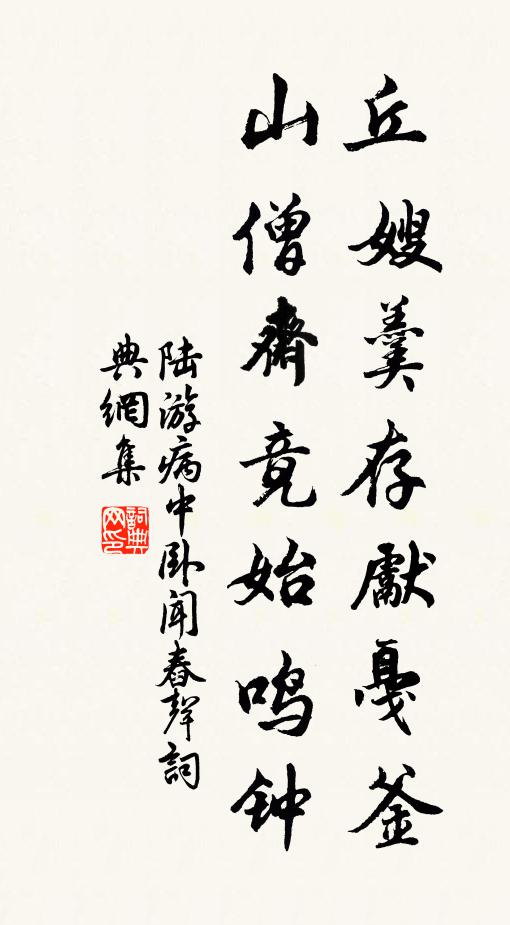 丘嫂羹存獻戛釜
山僧齋竟始鸣钟
陆游病中卧闻舂聲詞
典網集
詞典
网印